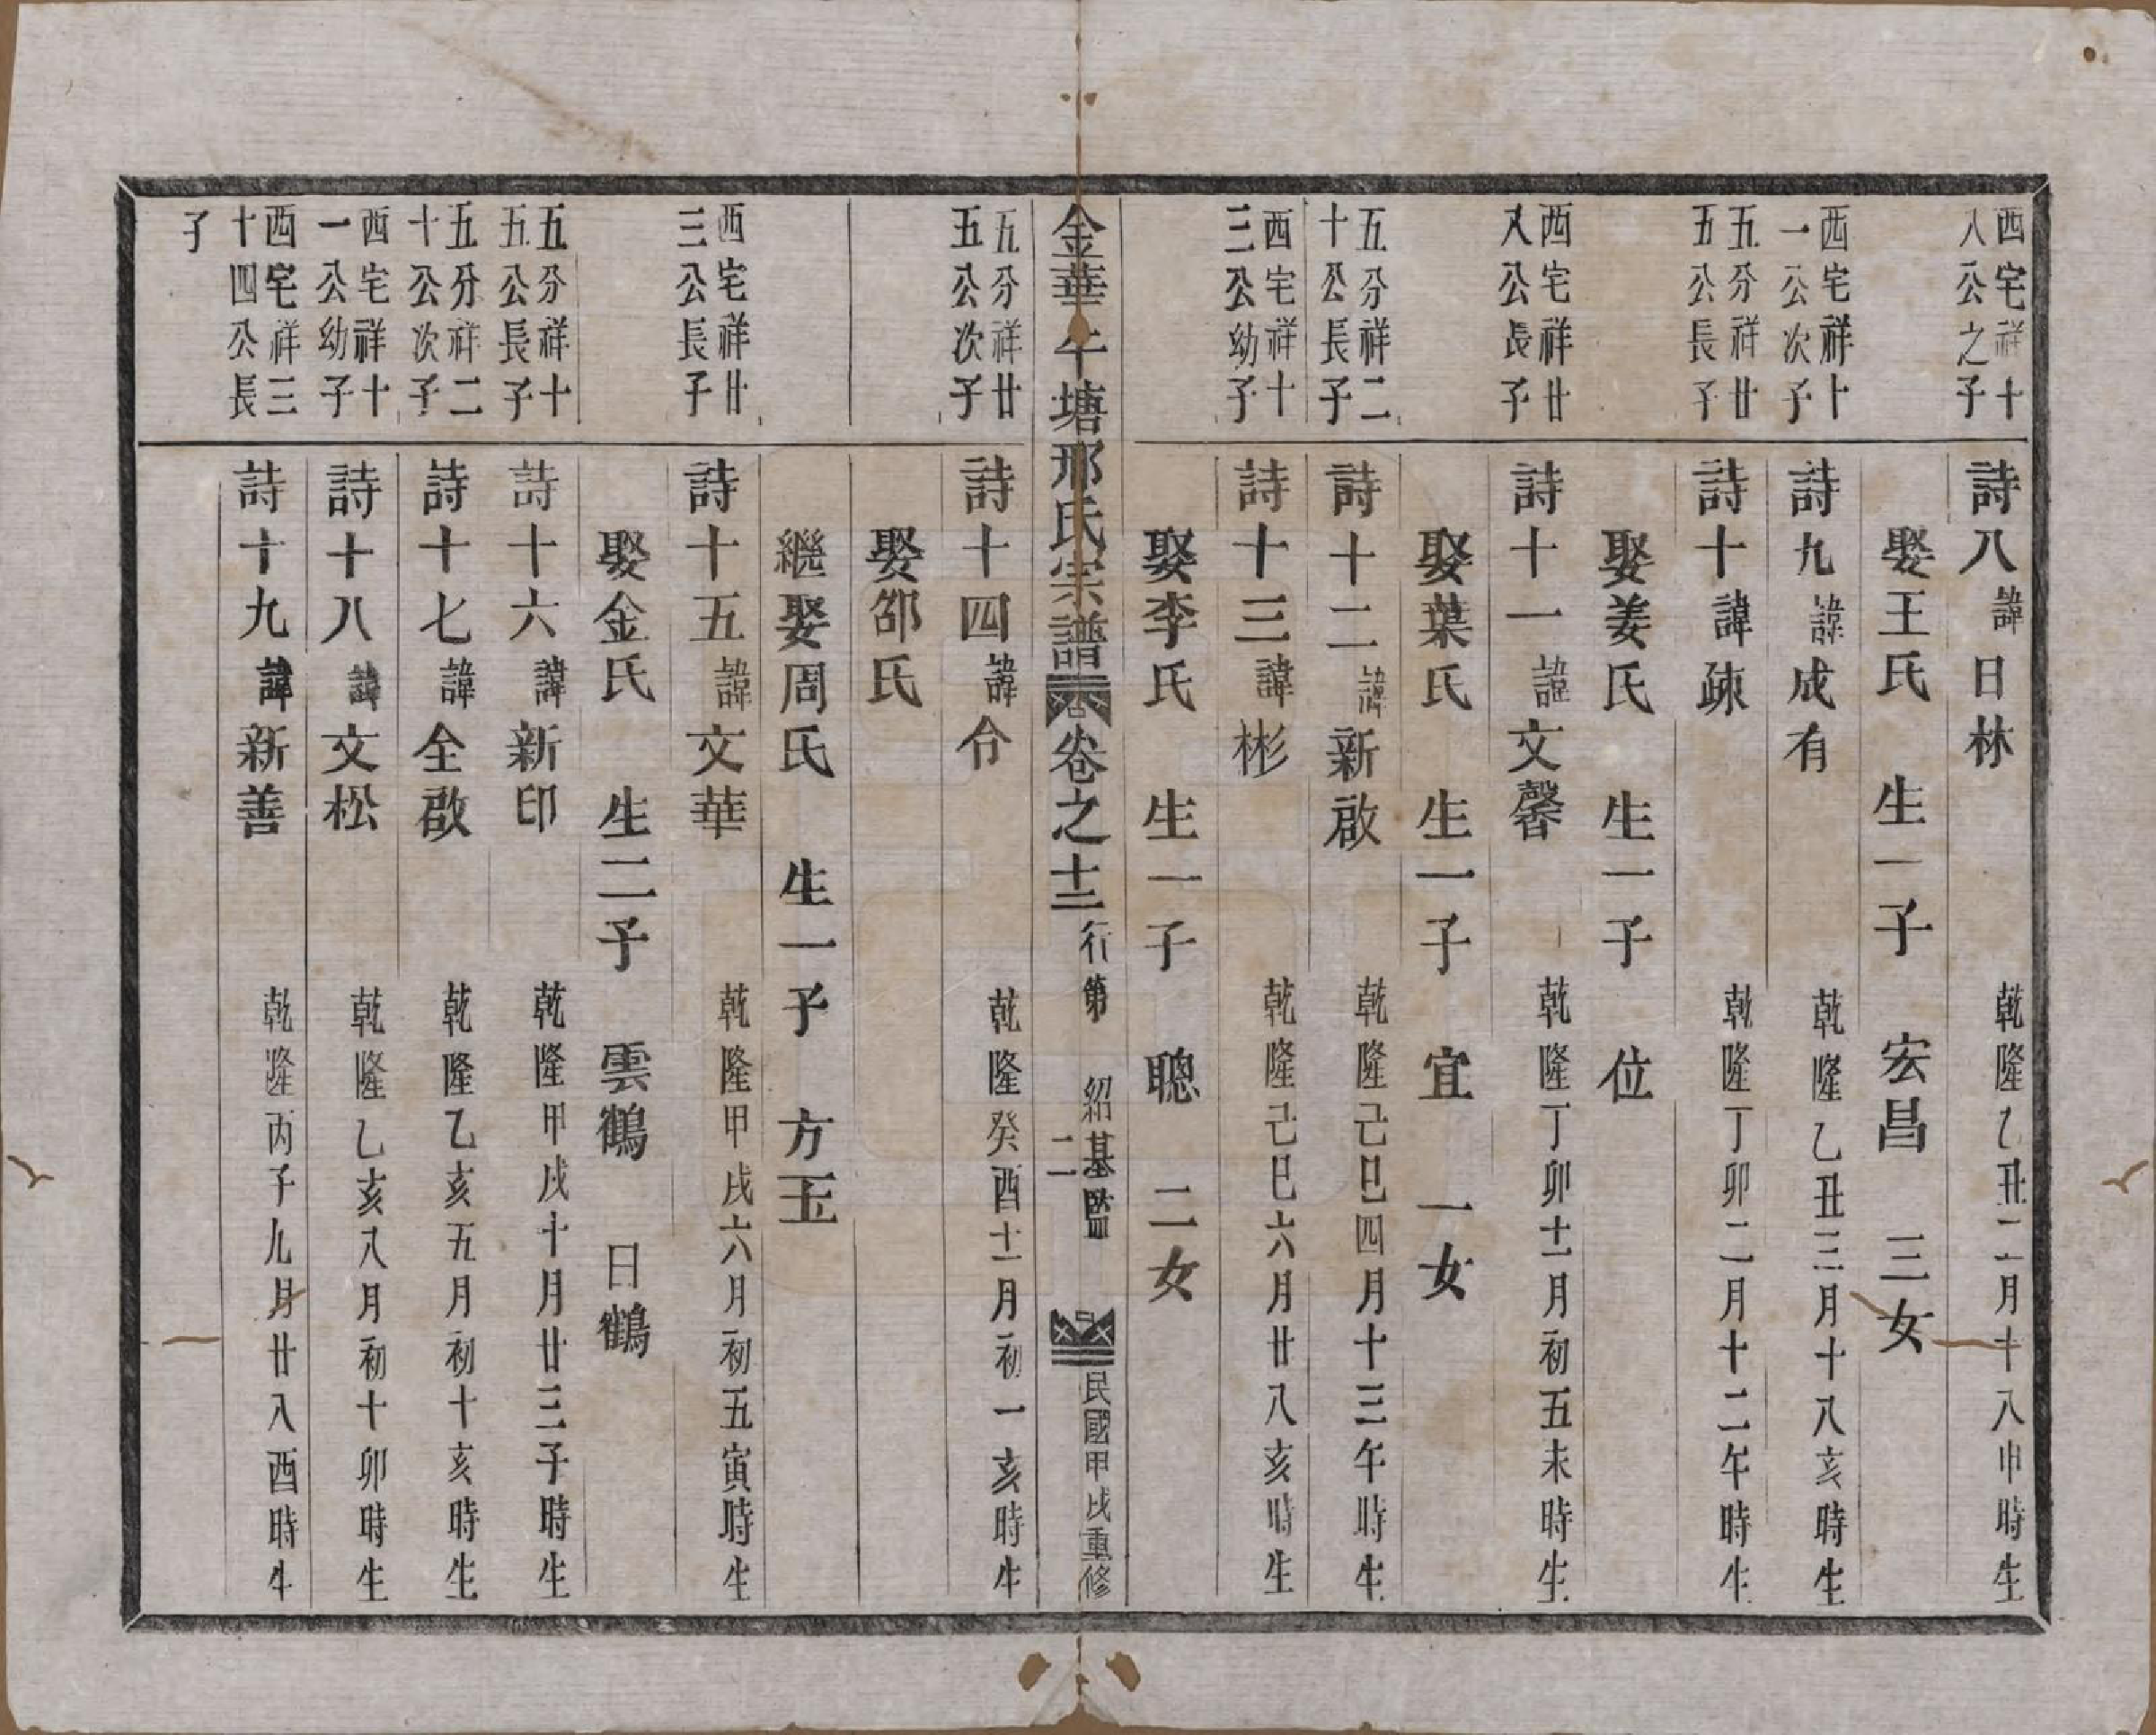 西宅祥十
八公之子
詩八 諱日林 乾隆乙丑二月十八申時生
娶王氏 生一子 宏昌 三女
西宅祥十
一公次子
詩九 諱成有 乾隆乙丑三月十八亥時生
五分祥廿
五公長子
詩十 諱疎 乾隆丁卯二月十二午時生
娶姜氏 生一子 位
西宅祥廿
八公長子
詩十一 諱文馨 乾隆丁卯十一月初五未時生
娶葉氏 生一子 宜 一女
五分祥二
十公長子
詩十二 諱新啟 乾隆己巳四月十三午時生
西宅祥十
三公幼子
詩十三 諱彬 乾隆己巳六月廿八亥時生
娶李氏 生一子 聰 二女
金華午塘邢氏宗譜 卷之十二 行第 紹基監 二 民國甲戌重修
五分祥廿
五公次子
詩十四 諱令 乾隆癸酉十一月初一亥時生
娶邵氏
繼娶周氏 生一子 方玉
西宅祥廿
三公長子
詩十五 諱文華 乾隆甲戌六月初五寅時生
娶金氏 生二子 雲鶴 日鶴
五分祥十
五公長子
詩十六 諱新印 乾隆甲戌十月廿三子時生
五分祥二
十公次子
詩十七 諱全啟 乾隆乙亥五月初十亥時生
西宅祥十
一公幼子
詩十八 諱文松 乾隆乙亥八月初十卯時生
西宅祥三
十四公長
子
詩十九 諱新善 乾隆丙子九月廿八酉時生